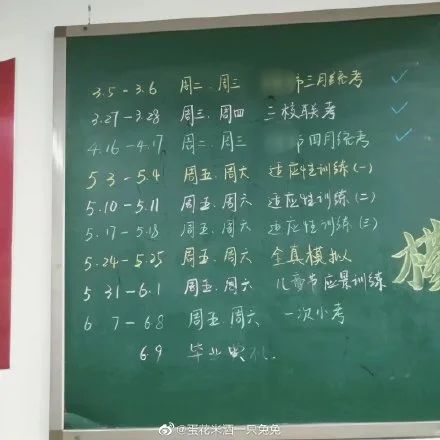 3.5-3.6 周二、周三 市三月统考 ✓
3.27-3.28 周三、周四 三校联考 ✓
4.16-4.17 周二、周三 市四月统考 ✓
5.3-5.4 周五、周六 适应性训练(一)
5.10-5.11 周五、周六 适应性训练(二)
5.17-5.18 周五、周六 适应性训练(三)
5.24-5.25 周五、周六 全真模拟
5.31-6.1 周五、周六 儿童节应景训练
6.7-6.8 周五、周六 一次小考
6.9 毕业典礼.
@蛋花米酒一只兔兔